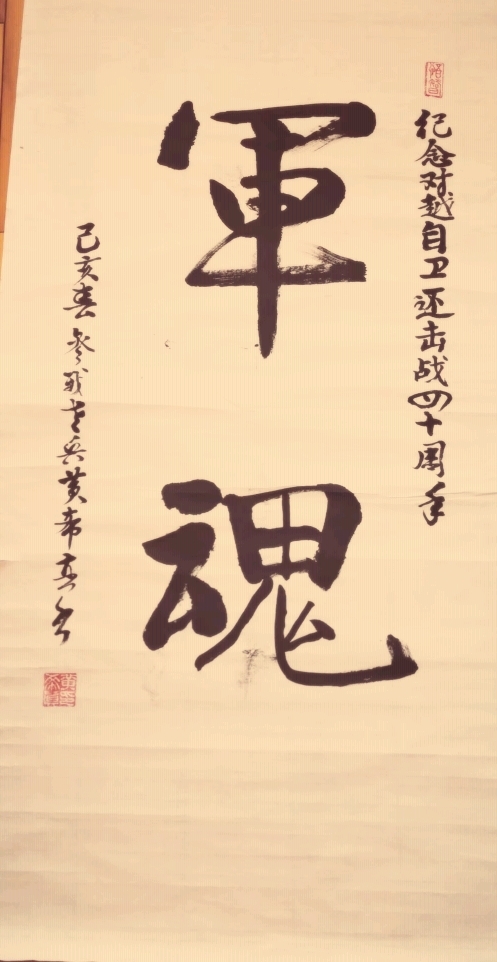 纪念对越自卫还击战四十周年
軍魂
己亥春 參战老兵黄希真书